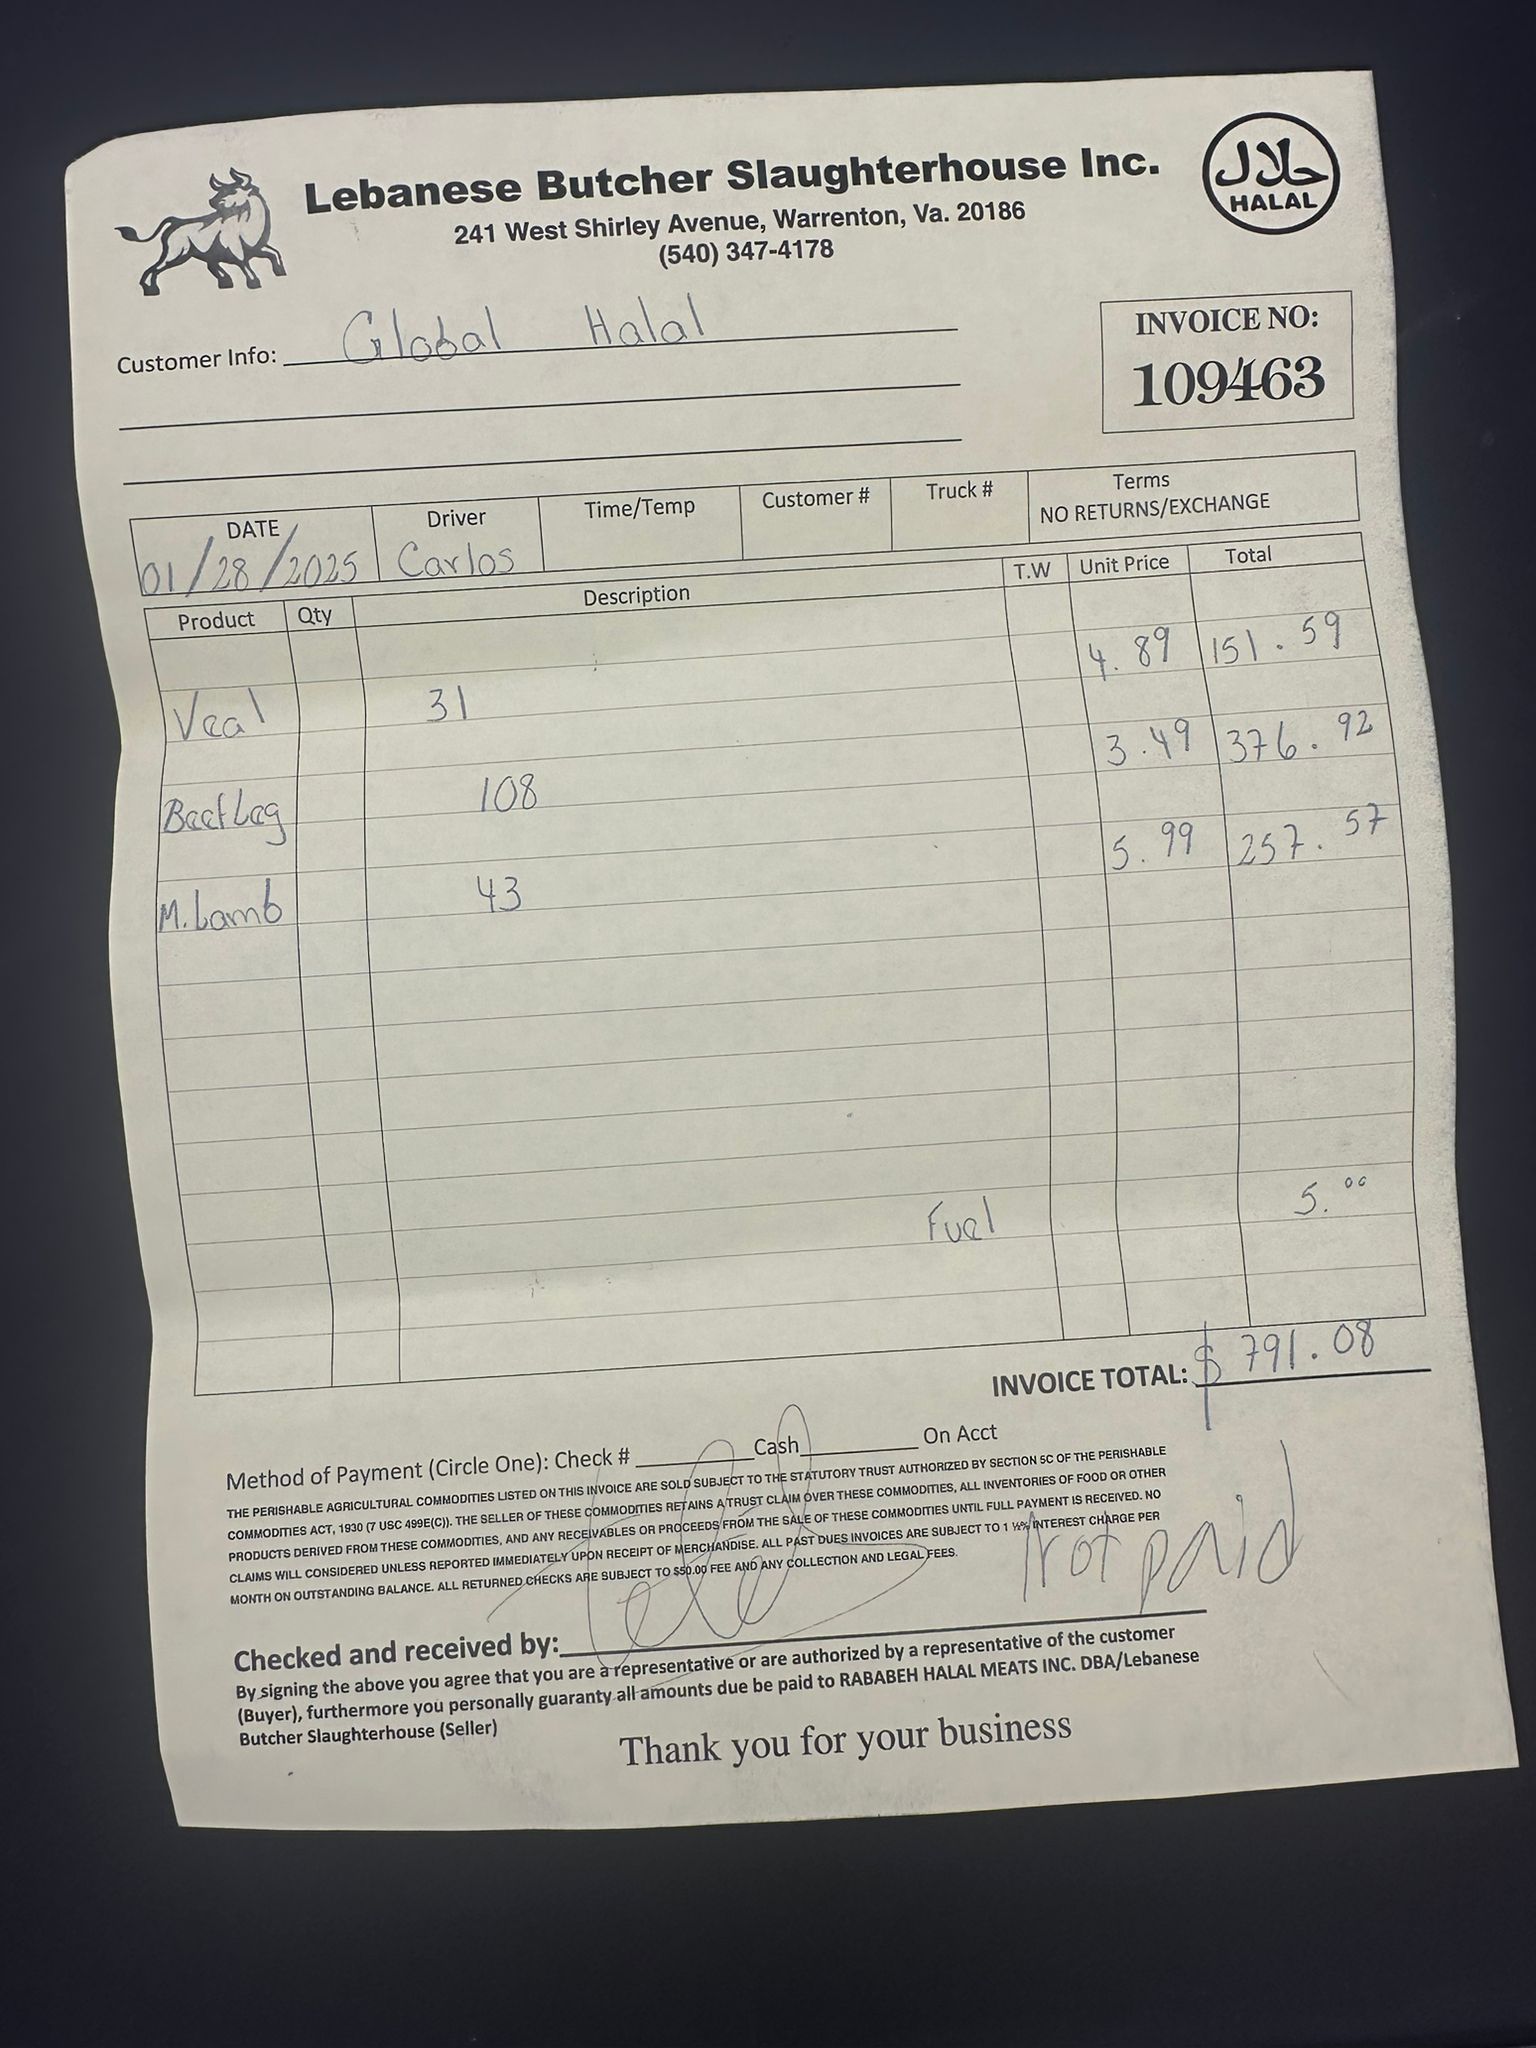 Lebanese Butcher Slaughterhouse Inc.
241 West Shirley Avenue, Warrenton, Va. 20186
(540) 347-4178
حلال
HALAL
Customer Info: Global Halal
INVOICE NO:
109463
DATE Driver Time/Temp Customer # Truck # Terms
NO RETURNS/EXCHANGE
01/28/2025 Carlos
Product Qty Description T.W Unit Price Total
Veal 31 4.89 151.59
Beef Leg 108 3.49 376.92
M. Lamb 43 5.99 257.57
Fuel 5.00
INVOICE TOTAL: $ 791.08
Method of Payment (Circle One): Check # Cash On Acct
THE PERISHABLE AGRICULTURAL COMMODITIES LISTED ON THIS INVOICE ARE SOLD SUBJECT TO THE STATUTORY TRUST AUTHORIZED BY SECTION 5C OF THE PERISHABLE
COMMODITIES ACT, 1930 (7 USC 499E(C)). THE SELLER OF THESE COMMODITIES RETAINS A TRUST CLAIM OVER THESE COMMODITIES, ALL INVENTORIES OF FOOD OR OTHER
PRODUCTS DERIVED FROM THESE COMMODITIES, AND ANY RECEIVABLES OR PROCEEDS FROM THE SALE OF THESE COMMODITIES UNTIL FULL PAYMENT IS RECEIVED. NO
CLAIMS WILL CONSIDERED UNLESS REPORTED IMMEDIATELY UPON RECEIPT OF MERCHANDISE. ALL PAST DUES INVOICES ARE SUBJECT TO 1 ½% INTEREST CHARGE PER
MONTH ON OUTSTANDING BALANCE. ALL RETURNED CHECKS ARE SUBJECT TO $50.00 FEE AND ANY COLLECTION AND LEGAL FEES.
Not paid
Checked and received by:
By signing the above you agree that you are a representative or are authorized by a representative of the customer
(Buyer), furthermore you personally guaranty all amounts due be paid to RABABEH HALAL MEATS INC. DBA/Lebanese
Butcher Slaughterhouse (Seller)
Thank you for your business